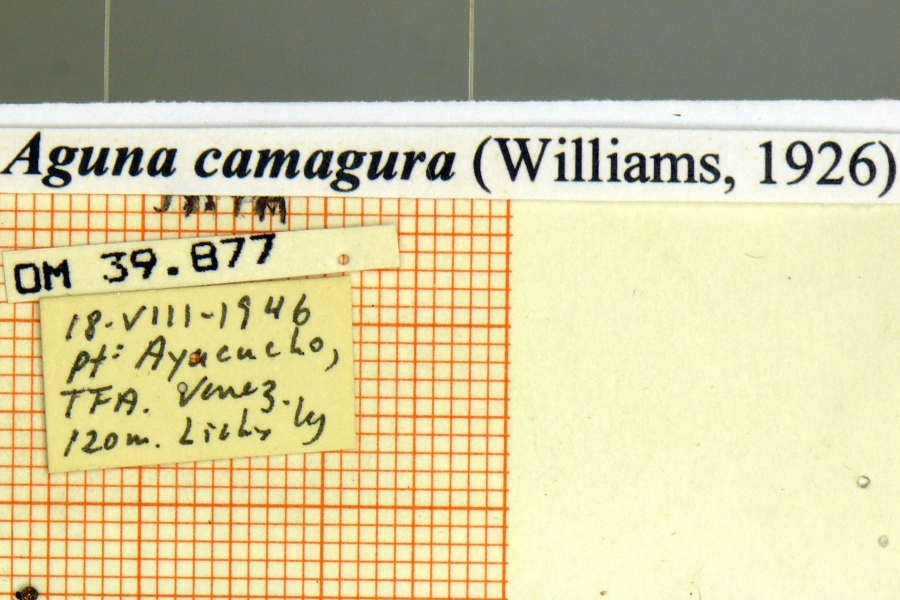 Aguna camagura (Williams, 1926)
OM 39.877
18-VIII-1946
pt: Ayacucho,
TFA. Venez.
120m. Lichy leg